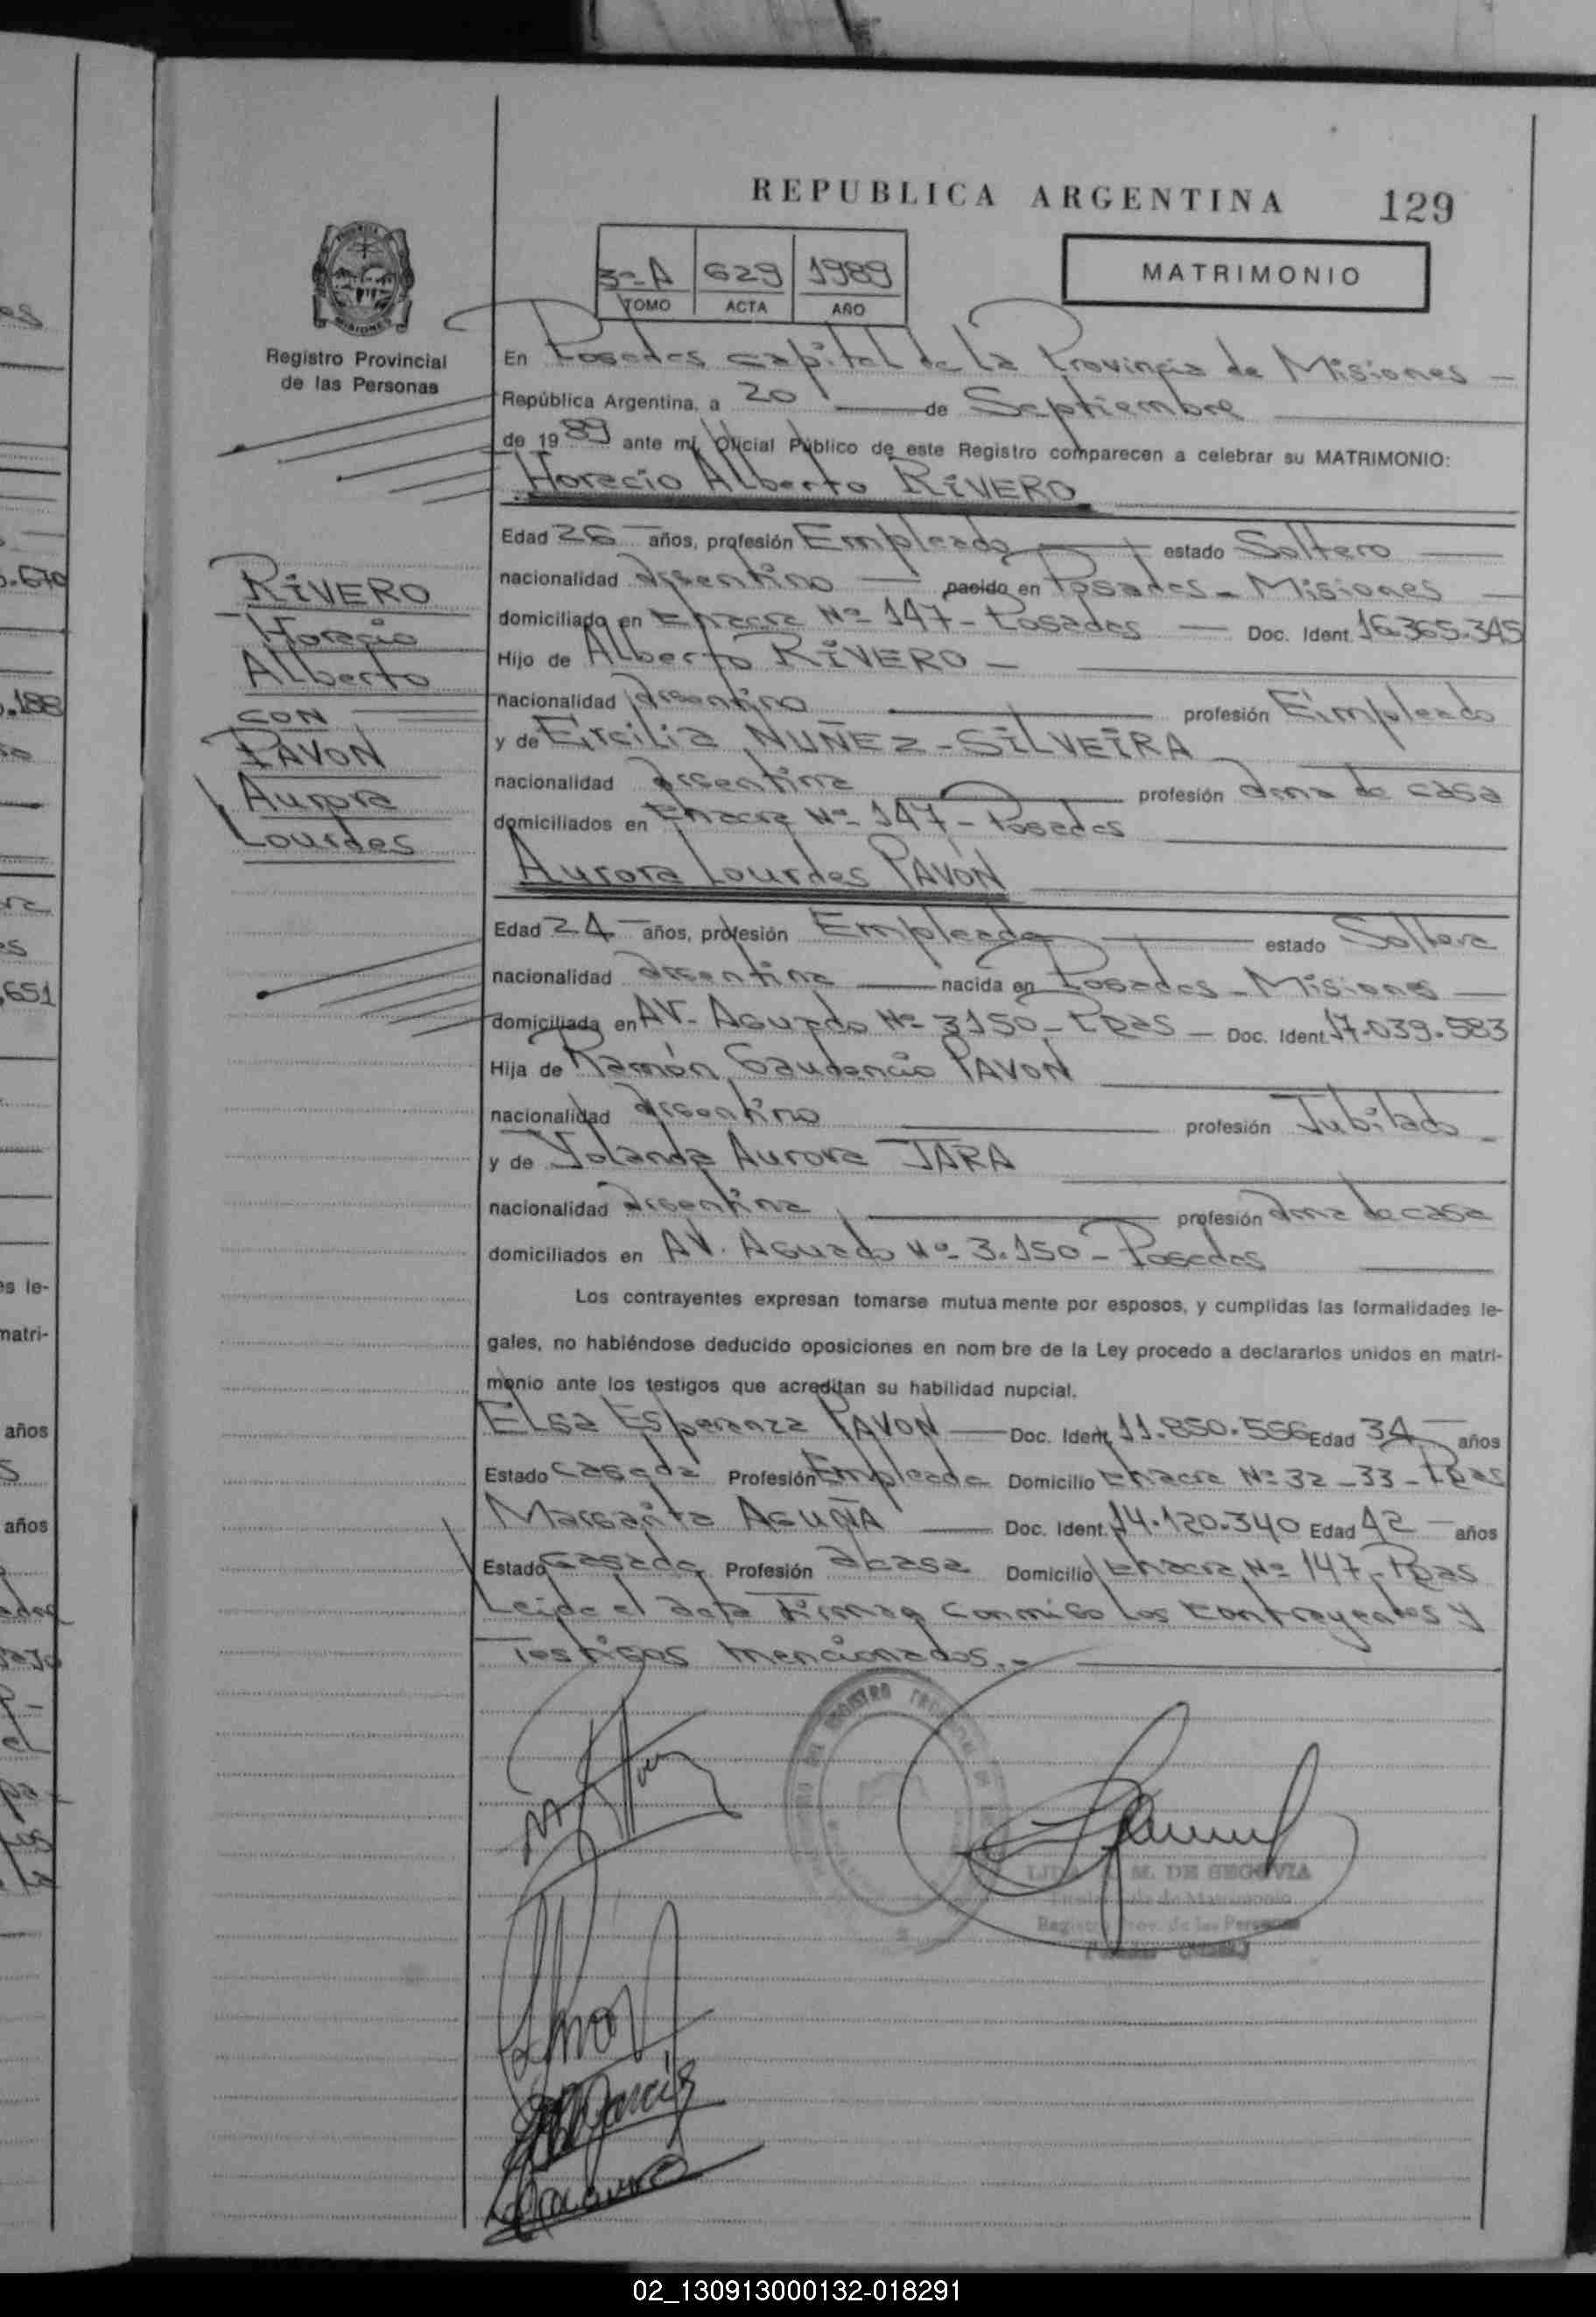 REPUBLICA ARGENTINA
129
3º-A 629 1989
TOMO ACTA AÑO
MATRIMONIO
Registro Provincial
de las Personas
En Posadas capital de la Provincia de Misiones
República Argentina, a 20 de Septiembre
de 1989 ante mí, Oficial Público de este Registro comparecen a celebrar su MATRIMONIO:
Horacio Alberto RIVERO
Edad 26 años, profesión Empleado estado Soltero
nacionalidad argentino nacido en Posadas - Misiones
domiciliado en Chacra Nº 147 - Posadas Doc. Ident. 16.365.345
Hijo de Alberto RIVERO
nacionalidad argentino profesión Empleado
y de Ercilia NUÑEZ-SILVEIRA
nacionalidad argentina profesión ama de casa
domiciliados en Chacra Nº 147 - Posadas
Aurora Lourdes PAVON
Edad 24 años, profesión Empleada estado Soltera
nacionalidad argentina nacida en Posadas - Misiones
domiciliada en AV. Aguado Nº 3150 - Pdas Doc. Ident. 17.039.583
Hija de Ramón Gaudencio PAVON
nacionalidad argentino profesión Jubilado
y de Yolanda Aurora JARA
nacionalidad argentina profesión ama de casa
domiciliados en AV. Aguado Nº 3.150 - Posadas
Los contrayentes expresan tomarse mutuamente por esposos, y cumplidas las formalidades le-
gales, no habiéndose deducido oposiciones en nombre de la Ley procedo a declararlos unidos en matri-
monio ante los testigos que acreditan su habilidad nupcial.
Elsa Esperanza PAVON Doc. Ident. 11.850.566 Edad 34 años
Estado casada Profesión Empleada Domicilio Chacra Nº 32-33 - Pdas
Margarita AGUÑA Doc. Ident. 14.120.340 Edad 42 años
Estado Casada Profesión acasa Domicilio Chacra Nº 147 - Pdas
Leida el acta Firman conmigo los contrayentes y
Testigos mencionados.-
RIVERO
Horacio
Alberto
CON
PAVON
Aurora
Lourdes
M. DE SEGOVIA
de Matrimonio
Registro Prov. de las Personas
02_130913000132-018291